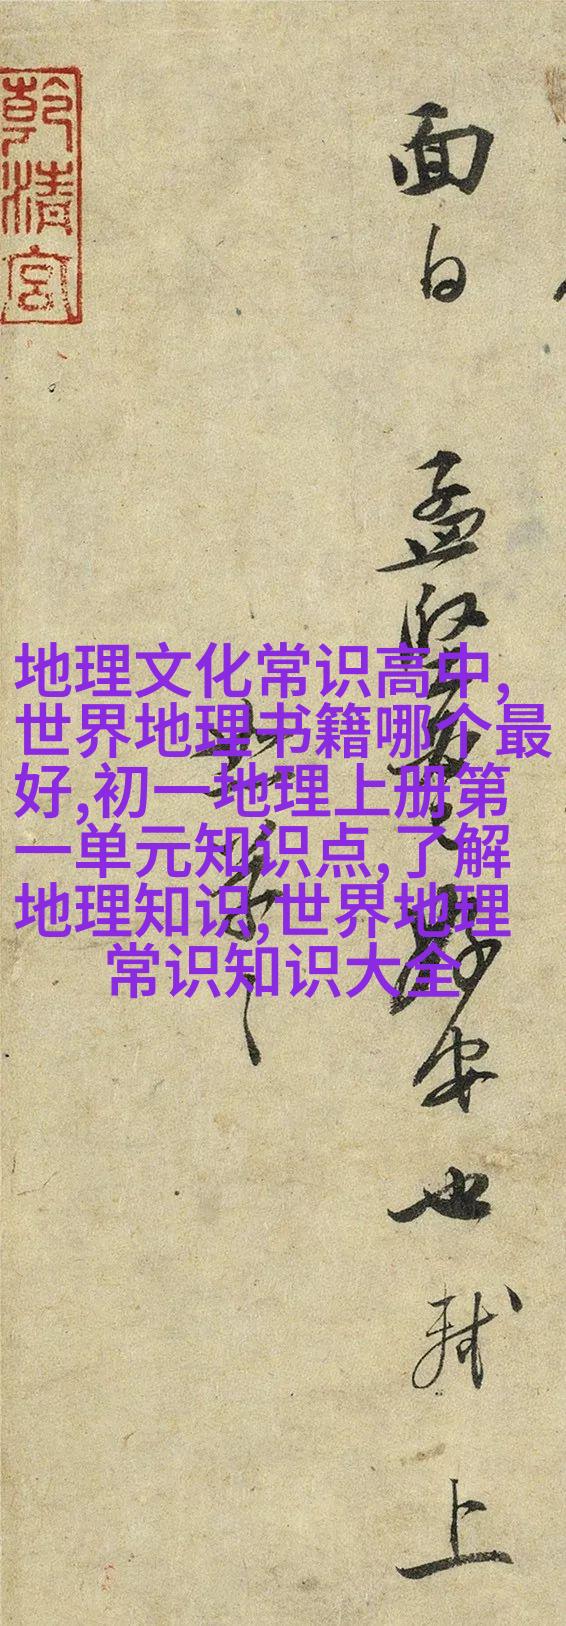 地理文化常识高中,
世界地理书籍哪个最
好,初一地理上册第
一单元知识点,了解
地理知识,世界地理
常识知识大全
面白 孟堅 安也軾上
乾清宮